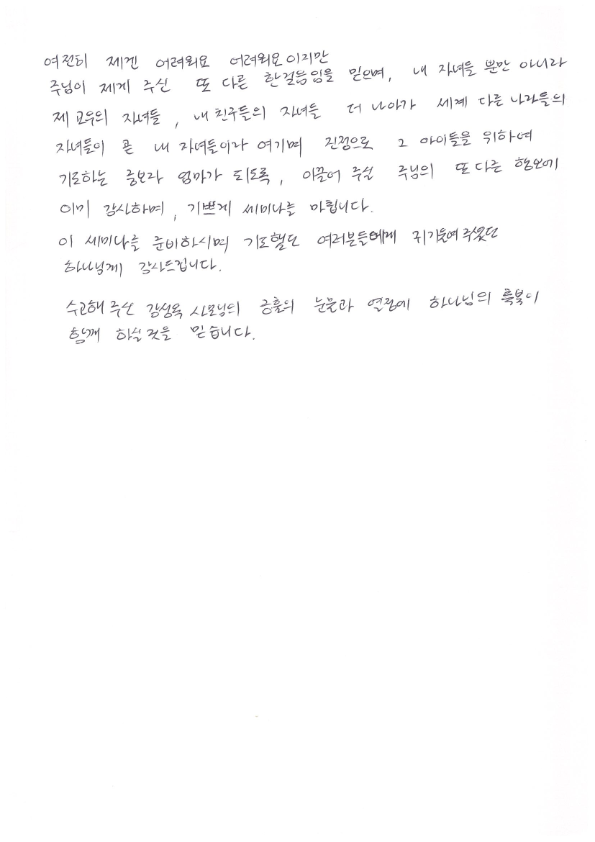 여전히 제겐 어려워요 어려워요이지만
주님이 제게 주신 또 다른 한걸음임을 믿으며, 내 자녀들 뿐만 아니라
제 교우의 자녀들, 내 친구들의 자녀들 더 나아가 세계 다른 나라들의
자녀들이 곧 내 자녀들이라 여기며 진정으로 그 아이들을 위하여
기도하는 중보자 엄마가 되도록, 이끌어 주실 주님의 또 다른 행보에
이미 감사하며, 기쁘게 세미나를 마칩니다.
이 세미나를 준비하시며 기도했던 여러분들에게 귀기울여주셨던
하나님께 감사드립니다.
수고해 주신 강성옥 사모님의 긍휼의 눈물과 열정에 하나님의 축복이
함께 하실 것을 믿습니다.